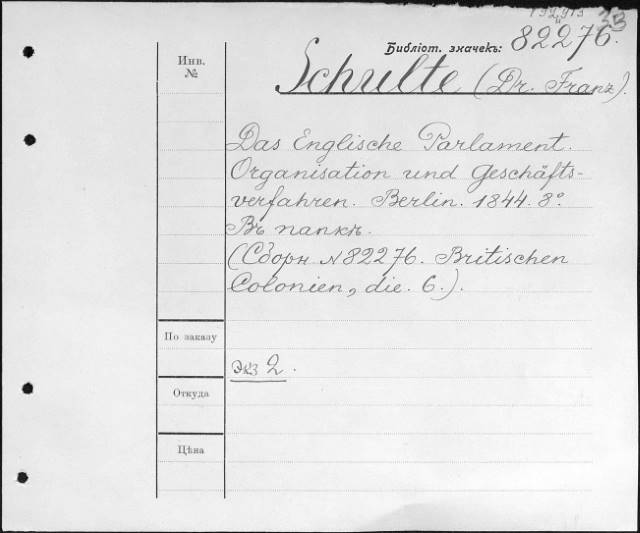 Библіот. значекъ: 82276.
Инв.
№
Schulte (Dr. Franz).
Das Englische Parlament.
Organisation und Geschäfts-
verfahren. Berlin. 1844. 8°.
Въ папкѣ.
(Сборн. №82276. Britischen
Colonien, die. 6.).
По заказу
экз 2.
Откуда
Цѣна